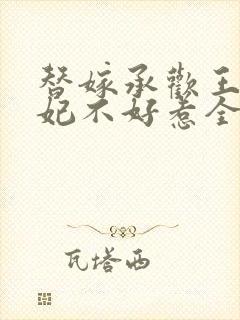 替嫁承歡王
妃不好惹全
瓦塔西